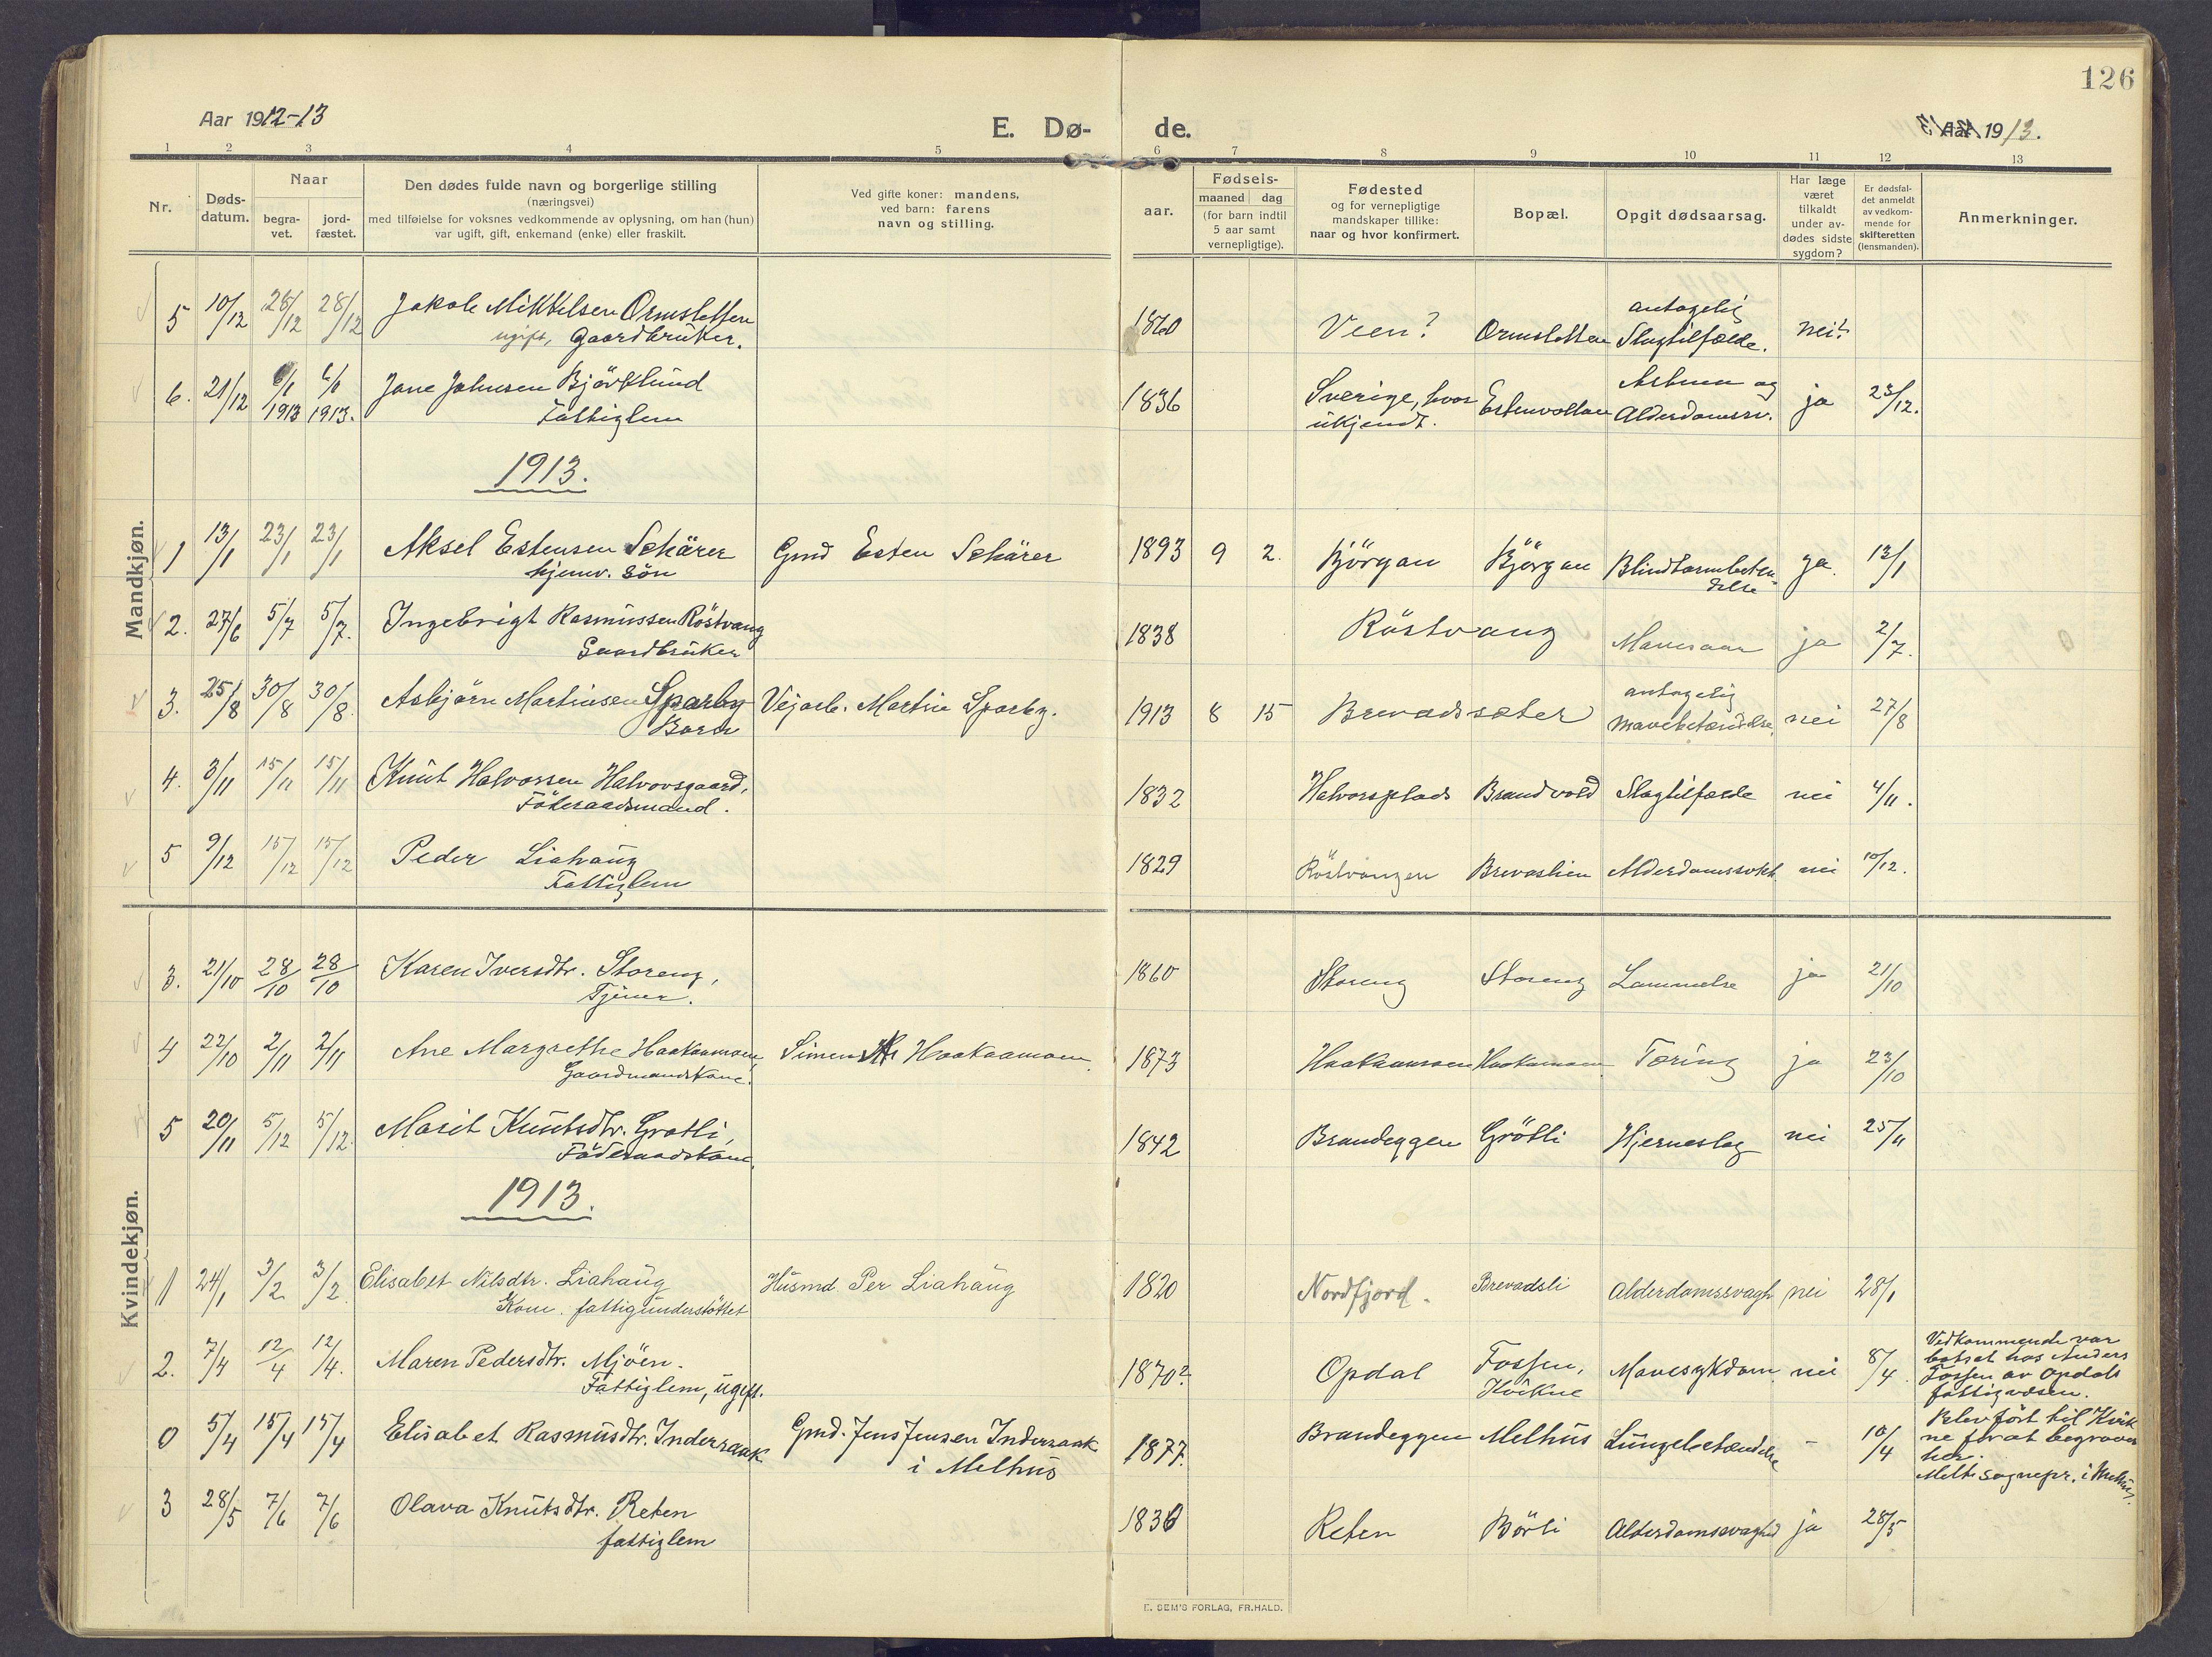 126
Aar 1912-13
E. Dø- de.
Aar 1913.
1 2 3 4 5 6 7 8 9 10 11 12 13
Nr.
Døds-
datum.
Naar
begra-
vet.
jord-
fæstet.
Den dødes fulde navn og borgerlige stilling
(næringsvei)
med tilføielse for voksnes vedkommende av oplysning, om han (hun)
var ugift, gift, enkemand (enke) eller fraskilt.
Ved gifte koner: mandens,
ved barn: farens
navn og stilling.
aar.
Fødsels-
maaned dag
(for barn indtil
5 aar samt
vernepligtige).
Fødested
og for vernepligtige
mandskaper tillike:
naar og hvor konfirmert.
Bopæl.
Opgit dødsaarsag.
Har læge
været
tilkaldt
under av-
dødes sidste
sygdom?
Er dødsfal-
det anmeldt
av vedkom-
mende for
skifteretten
(lensmanden).
Anmerkninger.
Mandkjøn.
5 10/12 28/12 28/12 Jakob Mikkelsen Ormsletten 1860 Veen? Ormsletten antagelig
ugift, Gaardbruker. Slagtilfælde. nei?
6. 21/12 6/1 1913 6/1 1913. Jone Johnsen Björklund 1836 Sverige, hvor Estenvollen
Fattiglem ukjendt. Alderdomssv. ja 23/12.
1913.
1 13/1 23/1 23/1 Aksel Estensen Schärer Gmd Esten Schärer 1893 9 2. Björgan Björgan Blindtarmbeten- ja. 13/1
hjemv. sön delse
2. 27/6 5/7 5/7. Ingebrigt Rasmussen Röstvang 1838 Röstvang Mavesaar ja 2/7.
Gaardbruker
3. 25/8 30/8 30/8. Asbjörn Martinsen Sparby Vejarb. Martin Sparby. 1913 8 15 Brevadssæter antagelig
Barn mavebetændelse, nei 27/8
4. 3/11 15/11 15/11 Knut Halvorsen Halvorsgaard, 1832 Halvorsplads Brandvold Slagtilfælde nei 4/11.
Föderaadsmand.
5 9/12 15/12 15/12 Peder Liahaug 1829 Röstvangen Brevaslien nei 10/12.
Fattiglem
Kvindekjøn.
3. 21/10 28/10 28/10 Karen Iversdtr. Storeng, 1860 Storeng Storeng Lammelse ja 21/10
Tjener.
4 22/10 2/11 2/11 Ane Margrethe Haakaamoen, Simen Haakaamoen 1873 Haakaamoen Haakaamoen Tæring ja 23/10
Gaardmandskone.
5 20/11 5/12 5/12. Marit Knutsdtr. Grötli, 1842 Brandeggen Grötli Hjerneslag nei 25/11
Föderaadskone.
1913.
1 24/1 3/2 3/2. Elisabet Nilsdtr. Liahaug Husmd. Per Liahaug 1820 Nordfjord. Brevadsli Alderdomssvagh nei 28/1
Kone. fattigunderstöttet
2. 7/4 12/4 12/4. Maren Pedersdtr. Mjöen. 1870? Opdal Fossen, Mavesykdom nei 8/4.
Fattiglem, ugift. Kvikne
Vedkommende var
bortsat hos Anders
Fossen av Opdals
fattigvæsen.
0 5/4 15/4 15/4 Elisabet Rasmusdtr. Indersaak Gmd. Jens Jensen Indersaak 1877. Brandeggen Melhus Lungebetændelse - 10/4
i Melhus
Blev fört til Kvik
ne forat begraves
her.
Meldt sognepr. i Melhus.
3 28/5 7/6 7/6 Olava Knutsdtr. Reten 1830 Reten Börli Alderdomssvaghed ja 28/5
fattiglem
E. SEM'S FORLAG, FR.HALD.